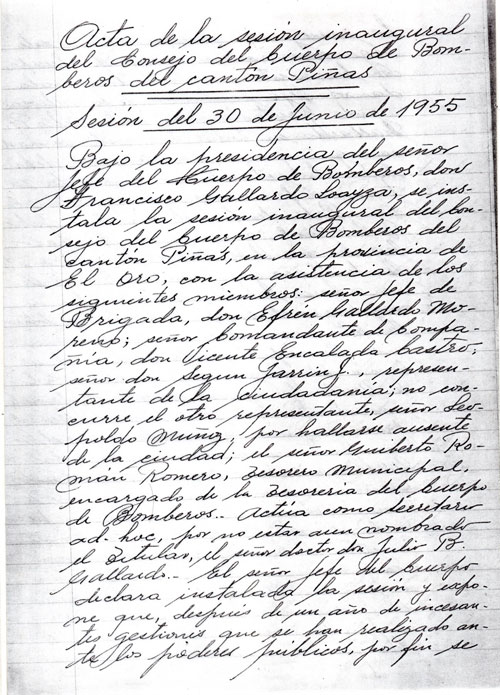 Acta de la sesión inaugural
del Consejo del Cuerpo de Bom-
beros del cantón Piñas
Sesión del 30 de Junio de 1955
Bajo la presidencia del señor
Jefe del Cuerpo de Bomberos, don
Francisco Gallardo Loayza, se ins-
tala la sesión inaugural del Con-
sejo del Cuerpo de Bomberos del
Cantón Piñas, en la provincia de
El Oro, con la asistencia de los
siguientes miembros: señor Jefe de
Brigada, don Efrén Gallardo Mo-
reno; señor Comandante de Compa-
ñía, don Vicente Encalada Castro;
señor don Segun Jarrín J., represen-
tante de la ciudadanía; no con-
curre el otro representante, señor Leo-
poldo Muñoz, por hallarse ausente
de la ciudad; el señor Guilberto Ro-
mán Romero, Tesorero Municipal,
encargado de la Tesorería del Cuerpo
de Bomberos.. Actúa como Secretario
ad-hoc, por no estar aun nombrado
el Titular, el señor doctor don Julio B.
Gallardo.. El señor Jefe del Cuerpo
declara instalada la sesión y expo-
ne que, después de un año de incesan-
tes gestiones que se han realizado an-
te los poderes públicos, por fin se